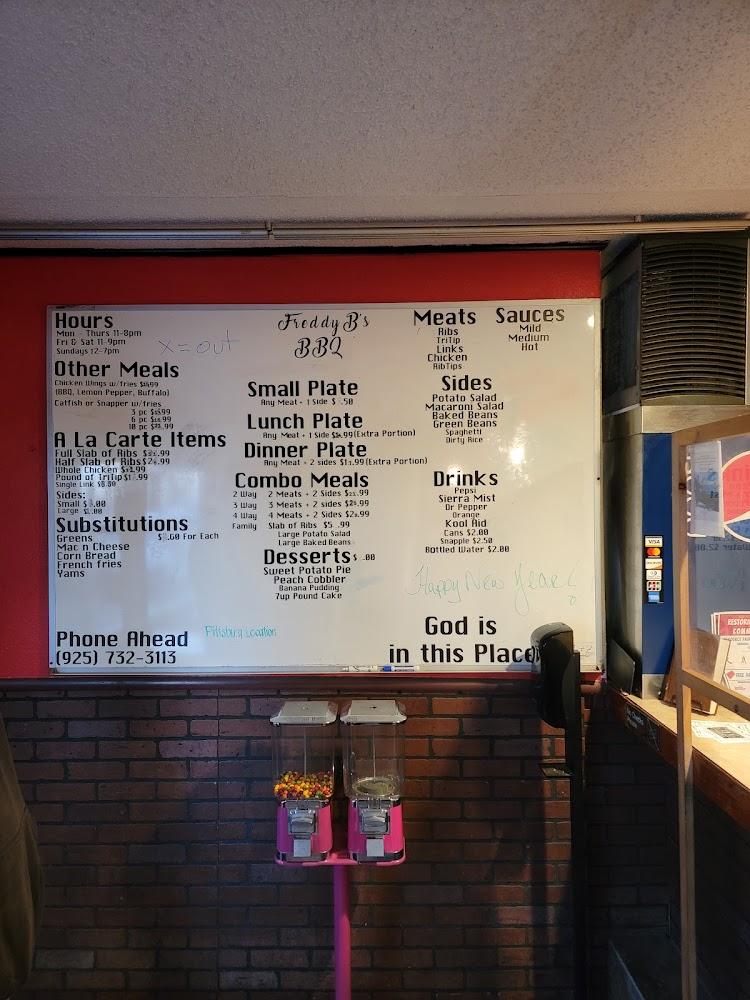 Hours
Mon - Thurs 11-8pm
Fri & Sat 11-9pm
Sundays 12-7pm
X=out
Other Meals
Chicken Wings w/fries
(BBQ, Lemon Pepper, Buffalo)
Catfish or Snapper w/fries
3 pc
6 pc
10 pc
A La Carte Items
Full Slab of Ribs
Half Slab of Ribs
Whole Chicken
Pound of TriTip
Single Link
Sides:
Small
Large
Substitutions
Greens
For Each
Mac n Cheese
Corn Bread
French fries
Yams
Phone Ahead
(925) 732-3113
Pittsburg Location
Freddy B's
BBQ
Small Plate
Any Meat + 1 Side
Lunch Plate
Any Meat + 1 Side (Extra Portion)
Dinner Plate
Any Meat + 2 sides (Extra Portion)
Combo Meals
2 Way 2 Meats + 2 Sides
3 Way 3 Meats + 2 Sides
4 Way 4 Meats + 2 Sides
Family Slab of Ribs
Large Potato Salad
Large Baked Beans
Desserts
Sweet Potato Pie
Peach Cobbler
Banana Pudding
7up Pound Cake
Meats
Ribs
TriTip
Links
Chicken
RibTips
Sauces
Mild
Medium
Hot
Sides
Potato Salad
Macaroni Salad
Baked Beans
Green Beans
Spaghetti
Dirty Rice
Drinks
Pepsi
Sierra Mist
Dr Pepper
Orange
Kool Aid
Cans $2.00
Snapple $2.50
Bottled Water $2.00
Happy New Year!
God is
in this Place
VISA